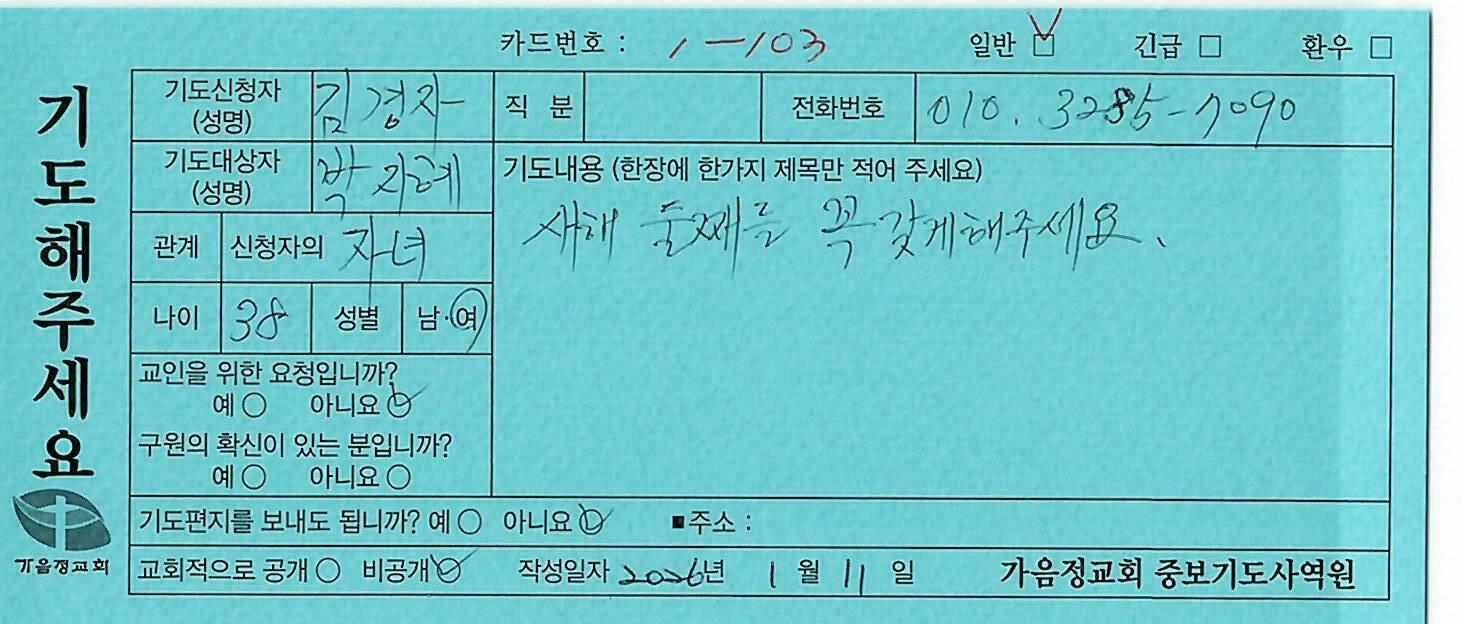 카드번호 : 1-103 일반 □ 긴급 □ 환우 □
기도해주세요
기도신청자 (성명) 김경자 직 분 전화번호 010. 3285-7090
기도대상자 (성명) 박지혜 기도내용 (한장에 한가지 제목만 적어 주세요)
새해 둘째를 꼭 갖게해주세요.
관계 신청자의 자녀
나이 38 성별 남·여
교인을 위한 요청입니까?
예 ○ 아니요 ○
구원의 확신이 있는 분입니까?
예 ○ 아니요 ○
기도편지를 보내도 됩니까? 예 ○ 아니요 ○ ■주소 :
교회적으로 공개 ○ 비공개 ○ 작성일자 2026년 1 월 11 일 가음정교회 중보기도사역원
가음정교회